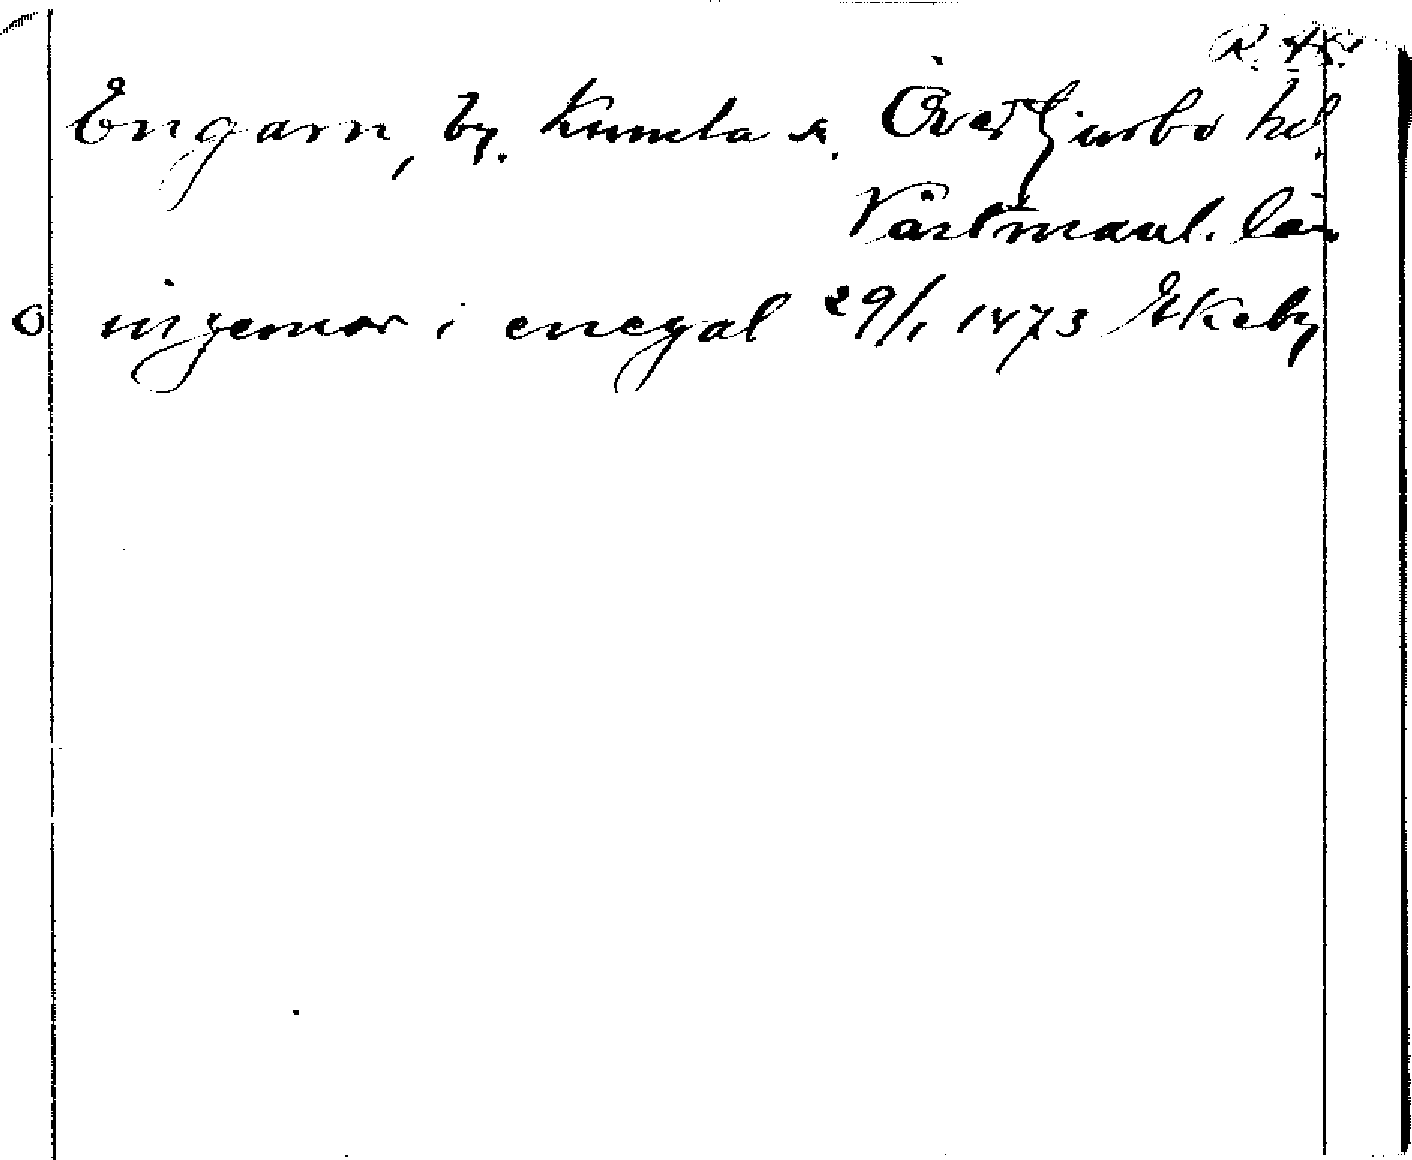 Engarn, by. Kumla s. Övertjurbo hd.
Västmanl. län
O ingemor i enegal 29/1 1473 Ekeby